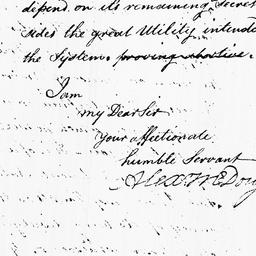 depend on its remaining secret
sides the great Utility intende
the System. proving abortive.
I am
my Dear Sir
Your affectionate
humble Servant
Alexr. McDoug